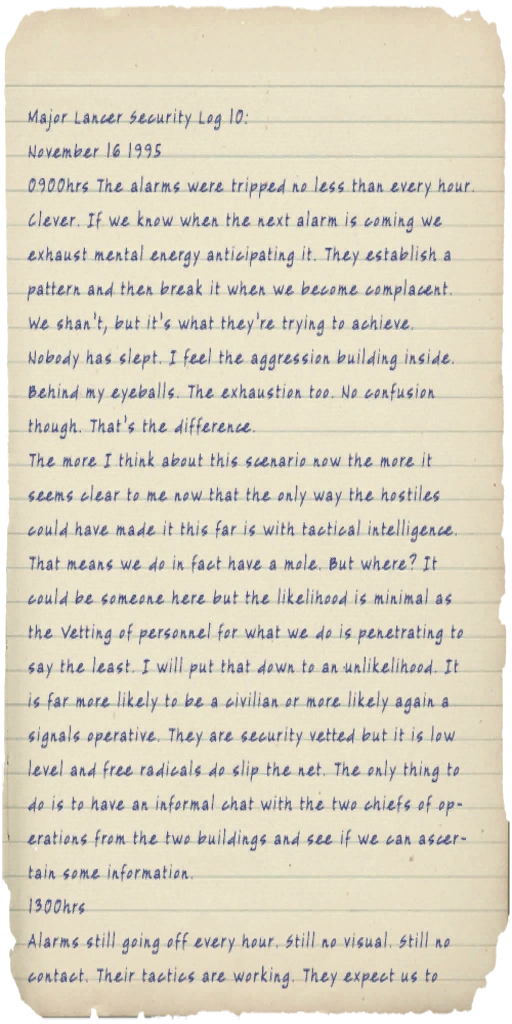 Major Lancer Security Log 10:
November 16 1995
0900hrs The alarms were tripped no less than every hour.
Clever. If we know when the next alarm is coming we
exhaust mental energy anticipating it. They establish a
pattern and then break it when we become complacent.
We shan't, but it's what they're trying to achieve.
Nobody has slept. I feel the aggression building inside.
Behind my eyeballs. The exhaustion too. No confusion
though. That's the difference.
The more I think about this scenario now the more it
seems clear to me now that the only way the hostiles
could have made it this far is with tactical intelligence.
That means we do in fact have a mole. But where? It
could be someone here but the likelihood is minimal as
the Vetting of personnel for what we do is penetrating to
say the least. I will put that down to an unlikelihood. It
is far more likely to be a civilian or more likely again a
signals operative. They are security vetted but it is low
level and free radicals do slip the net. The only thing to
do is to have an informal chat with the two chiefs of op-
erations from the two buildings and see if we can ascer-
tain some information.
1300hrs
Alarms still going off every hour. Still no visual. Still no
contact. Their tactics are working. They expect us to